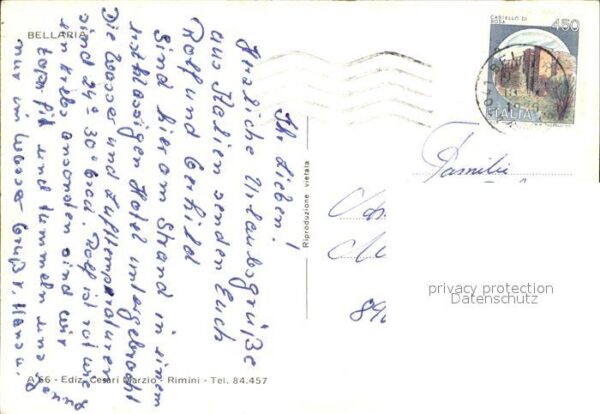 BELLARIA
Ihr Lieben!
Herzliche Urlaubsgrüße
aus Italien senden Euch
Rolf und Gerhild
Sind hier am Strand in einem
erstklassigen Hotel untergebracht
Die Wasser und Lufttemperaturen
sind 24° 30° Grad. Rolf ist rot wie
ein Krebs ansonsten sind wir
topfit und tummeln uns
nur im Wasser Gruß v.
Riproduzione vietata
A 66 - Ediz. Cesari Marzio - Rimini - Tel. 84.457
CASTELLO DI
ROSA
450
ITALIA
Familie
privacy protection
Datenschutz